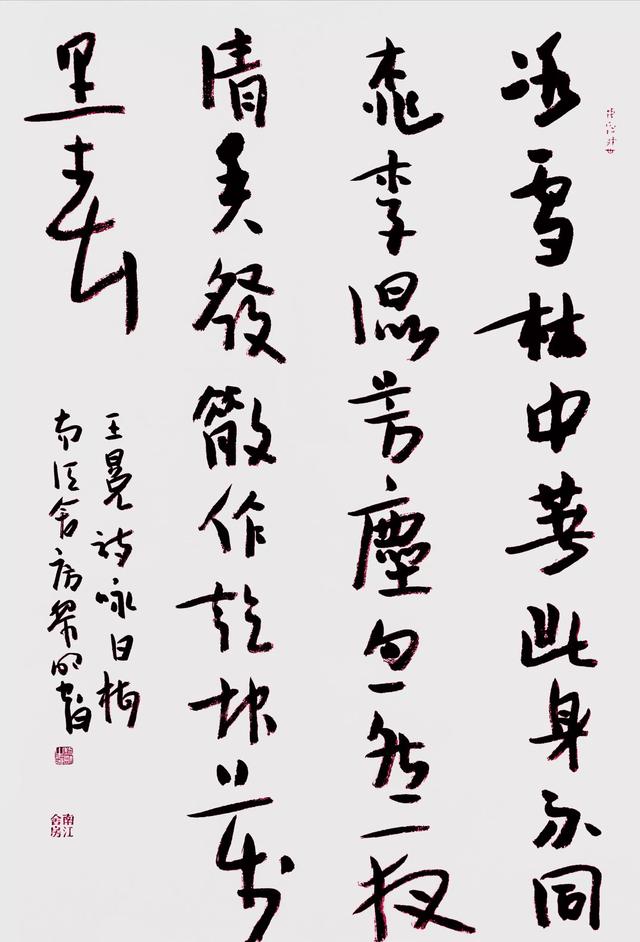 冰雪林中著此身不同
桃李混芳塵忽然一夜
清香發散作乾坤萬
里春
王冕詩咏白梅
南江舍房黎明書
南江舍房